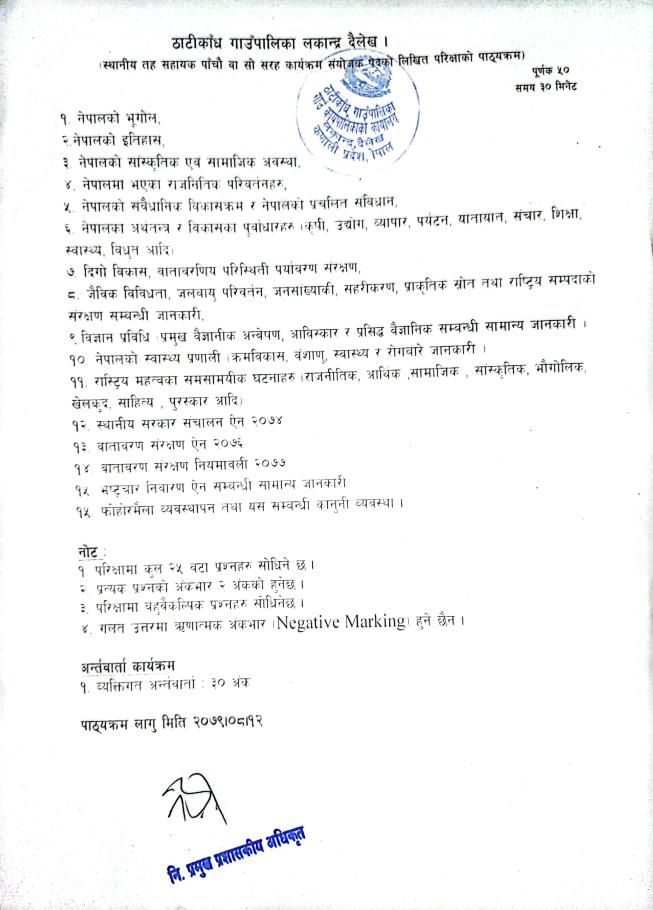 ठाटीकाँध गाउँपालिका लकान्द्र दैलेख ।
(स्थानीय तह सहायक पाँचौ वा सो सरह कार्यक्रम संयोजक पदको लिखित परिक्षाको पाठ्यक्रम)
पूर्णक ५०
समय ३० मिनेट
ठाटीकाँध गाउँपालिका
गाउँ कार्यपालिकाको कार्यालय
लकान्द्र, दैलेख
कर्णाली प्रदेश, नेपाल
१. नेपालको भूगोल,
२.नेपालको इतिहास,
३. नेपालको सांस्कृतिक एवं सामाजिक अवस्था,
४. नेपालमा भएका राजनितिक परिवर्तनहरु,
५. नेपालको संवैधानिक विकासक्रम र नेपालको प्रचलित संविधान,
६. नेपालका अर्थतन्त्र र विकासका पूर्वाधारहरु (कृषी, उद्योग, व्यापार, पर्यटन, यातायात, संचार, शिक्षा,
स्वास्थ्य, विधुत आदि)
७. दिगो विकास, वातावरणिय परिस्थिती पर्यावरण संरक्षण,
८. जैविक विविधता, जलवायु परिवर्तन, जनसांख्याकी, सहरीकरण, प्राकृतिक स्रोत तथा राष्ट्रिय सम्पदाको
संरक्षण सम्बन्धी जानकारी,
९.विज्ञान प्रविधि (प्रमुख वैज्ञानीक अन्वेषण, आविस्कार र प्रसिद्ध वैज्ञानिक सम्बन्धी सामान्य जानकारी ।
१०. नेपालको स्वास्थ्य प्रणाली (क्रमविकास, वंशाणु, स्वास्थ्य र रोगबारे जानकारी ।
११. रास्ट्रिय महत्वका समसामयीक घटनाहरु (राजनीतिक, आर्थिक ,सामाजिक , सांस्कृतिक, भौगोलिक,
खेलकुद, साहित्य , पुरस्कार आदि)
१२. स्थानीय सरकार संचालन ऐन २०७४
१३. वातावरण संरक्षण ऐन २०७६
१४. वातावरण संरक्षण नियमावली २०७७
१५. भष्ट्रचार निवारण ऐन सम्बन्धी सामान्य जानकारी
१५. फोहोरमैला व्यवस्थापन तथा यस सम्बन्धी कानुनी व्यवस्था ।
नोट :
१. परिक्षामा कुल २५ वटा प्रश्नहरु सोधिने छ ।
२. प्रत्यक प्रश्नको अंकभार २ अंकको हुनेछ ।
३. परिक्षामा बहुवैकल्पिक प्रश्नहरु सोधिनेछ ।
४. गलत उत्तरमा ऋणात्मक अंकभार (Negative Marking) हुने छैन ।
अर्न्तवार्ता कार्यक्रम
१. व्यक्तिगत अर्न्तवार्ता : ३० अंक
पाठ्यक्रम लागु मिति २०७९।०८।१२
नि. प्रमुख प्रशासकीय अधिकृत